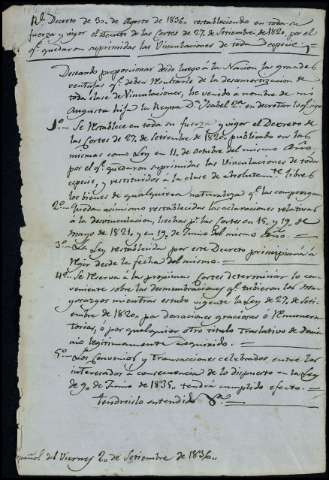 Rl. Decreto de 30. de Agosto de 1836. restableciendo en toda su
fuerza y vigor el decreto de las Cortes de 27. de Setiembre de 1820, por el
ql. quedaron suprimidas las Vinculaciones de toda especie.
Deseando proporcionar desde luego á la Nacion las grandes
ventajas ql. deben resultarle de la desamortizacion de
toda clase de Vinculaciones, he venido á nombre de mi
Augusta hija la Reyna Da. Isabel 2a. en decretar lo sigte.
1o. Se restablece en toda su fuerza y vigor el decreto de
las Cortes de 27. de Setiembre de 1820 publicado en las
mismas como Ley en 11. de Octubre del mismo año,
por el ql. quedaron suprimidas las Vinculaciones de toda
especie, y restituidos á la clase de absolutamte. libres
los bienes de qualquiera naturaleza ql. las compongan
2o. Quedan asimismo restablecidas las aclaraciones relativas
á la desvinculacion, hechas pr. las Cortes en 15. y 19. de
Mayo de 1821, y en 19. de Junio del mismo año.
3o. La Ley restablecida por este Decreto principiará á
regir desde la fecha del mismo.
4o. Se reserva á las proximas Cortes determinar lo
conveniente sobre las desmembraciones ql. tubieron los Ma-
yorazgos mientras estubo vigente la Ley de 27. de Seti-
embre de 1820, por donaciones graciosas ó remunera-
torias, ó por qualquier otro titulo traslativo de domi-
nio legitimamente adquirido.
5o. Los Convenios y Transacciones celebrados entre los
interesados á consecuencia de lo dispuesto en la Ley
de 9. de Junio de 1835. tendrá cumplido efecto.
Tendreislo entendido
español del Viernes 2. de Setiembre de 1836.